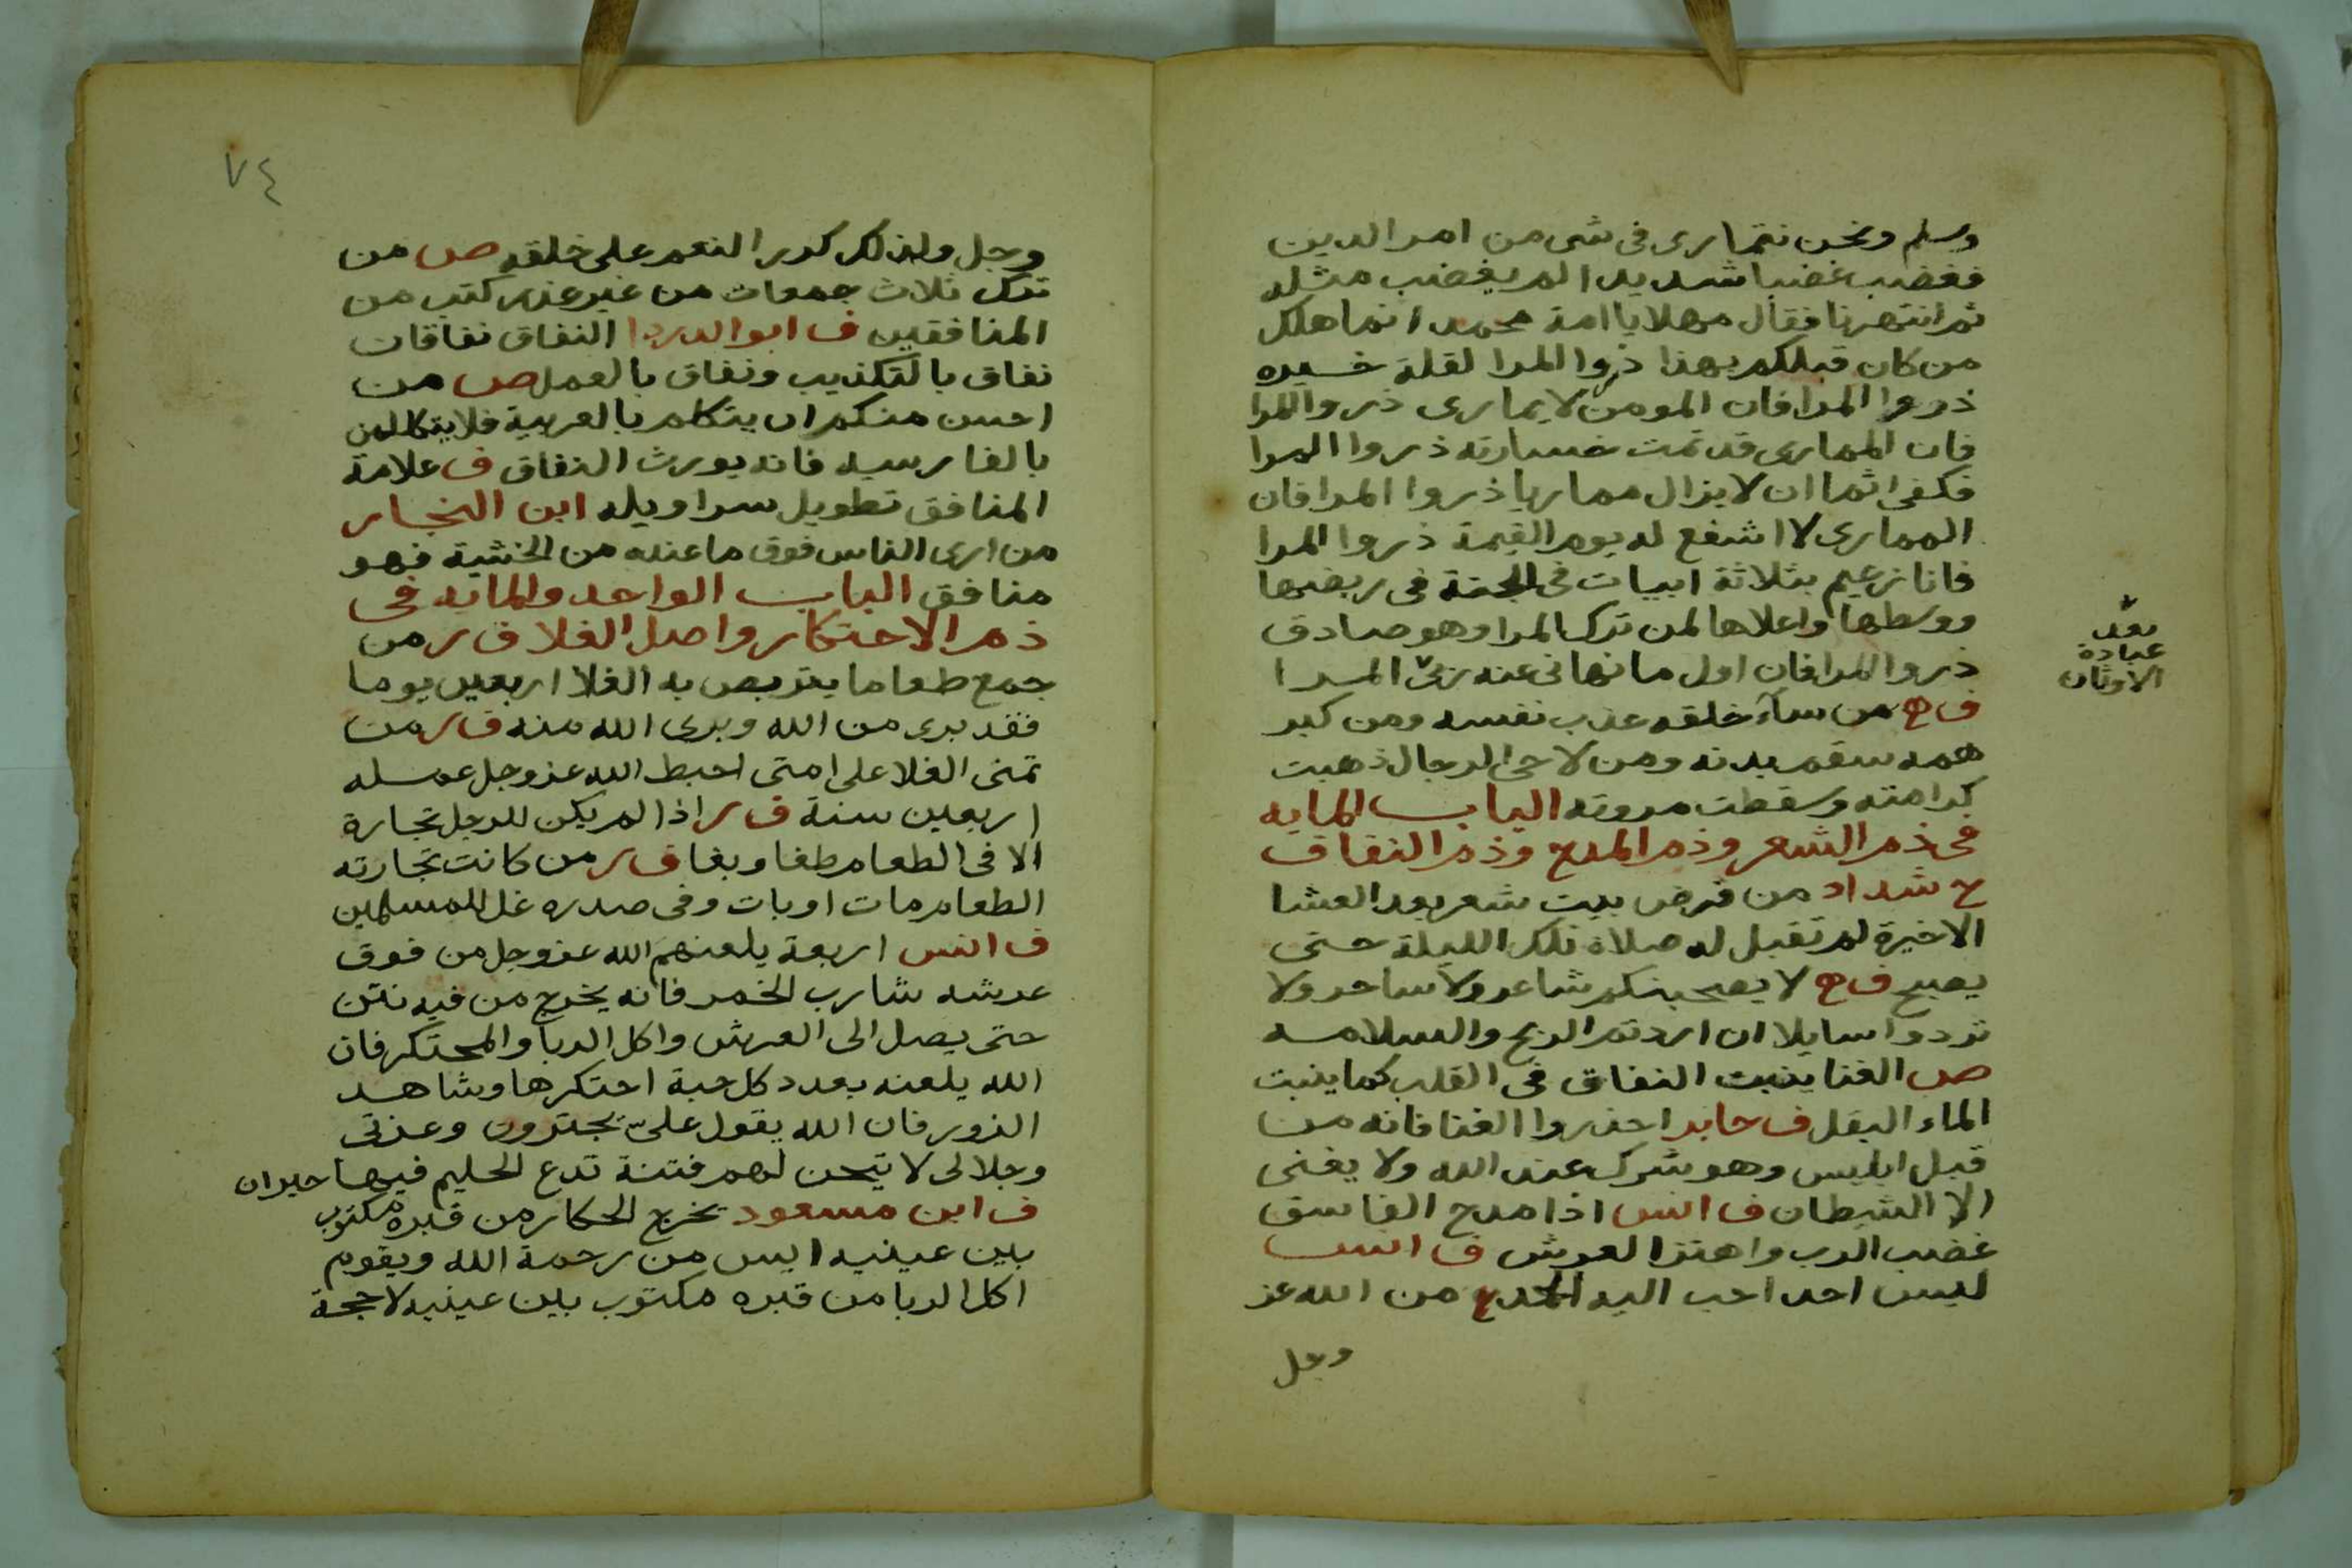 وسلم ونحن نتمارى فى شى من امر الدين
فغضب غضبا شديدا لم يغضب مثله
ثم انتهرنا فقال مهلا يا امة محمد انما هلك
من كان قبلكم بهذا ذروا المرا لقلة خيره
ذروا المرا فان المومن لا يمارى ذروا المرا
فان الممارى قد تمت خسارته ذروا المرا
فكفى اثما ان لا يزال مماريا ذروا المرا فان
الممارى لا اشفع له يوم القيمة ذروا المرا
فانا زعيم بثلاثة ابيات فى الجنة فى ربضها
ووسطها واعلاها لمن ترك المرا وهو صادق
ذروا المرا فان اول ما نهانى عنه ربى المرا
بعد
عبادة
الاوثان
ف ه من سآء خلقه عذب نفسه ومن كبر
همه سقم بدنه ومن لاحى الرجال ذهبت
كرامته وسقطت مروته الباب المايه
فى ذم الشعر وذم المدح وذم النفاق
ح شداد من قرض بيت شعر بعد العشا
الاخيرة لم تقبل له صلاة تلك الليلة حتى
يصبح ف ه لا يصحبنكم شاعر ولا ساحر ولا
تردوا سايلا ان اردتم الربح والسلامه
ص الغنا ينبت النفاق فى القلب كما ينبت
الماء البقل ف جابر احذروا الغنا فانه من
قبل ابليس وهو شرك عند الله ولا يغنى
الا الشيطان ف انس اذا مدح الفاسق
غضب الرب واهتز العرش ف انس
ليس احد احب اليه المدح من الله عز
وجل
٧٤
وجل ولذلك كدر النعم على خلقه ص من
ترك ثلاث جمعات من غير عذر كتب من
المنافقين ف ابو الدردا النفاق نفاقان
نفاق بالتكذيب ونفاق بالعمل ص من
احسن منكم ان يتكلم بالعربية فلا يتكلمن
بالفارسيه فانه يورث النفاق ف علامة
المنافق تطويل سراويله ابن النجار
من ارى الناس فوق ما عنده من الخشية فهو
منافق الباب الواحد والمايه فى
ذم الاحتكار واصل الغلا ف ر من
جمع طعاما يتربص به الغلا اربعين يوما
فقد برى من الله وبرى الله منه ف ر من
تمنى الغلا على امتى احبط الله عز وجل عمله
اربعين سنة ف ر اذا لم يكن للرجل تجارة
الا فى الطعام طغا وبغا ف ر من كانت تجارته
الطعام مات او بات وفى صدره غل للمسلمين
ف انس اربعة يلعنهم الله عز وجل من فوق
عرشه شارب الخمر فانه يخرج من فيه نتن
حتى يصل الى العرش واكل الربا والمحتكر فان
الله يلعنه بعدد كل حبة احتكرها وشاهد
الزور فان الله يقول علىّ يجترون وعزتى
وجلالى لا تيحن لهم فتنة تدع الحليم فيها حيران
ف ابن مسعود يخرج الحكار من قبره مكتوب
بين عينيه ايس من رحمة الله ويقوم
اكل الربا من قبره مكتوب بين عينيه لا حجة